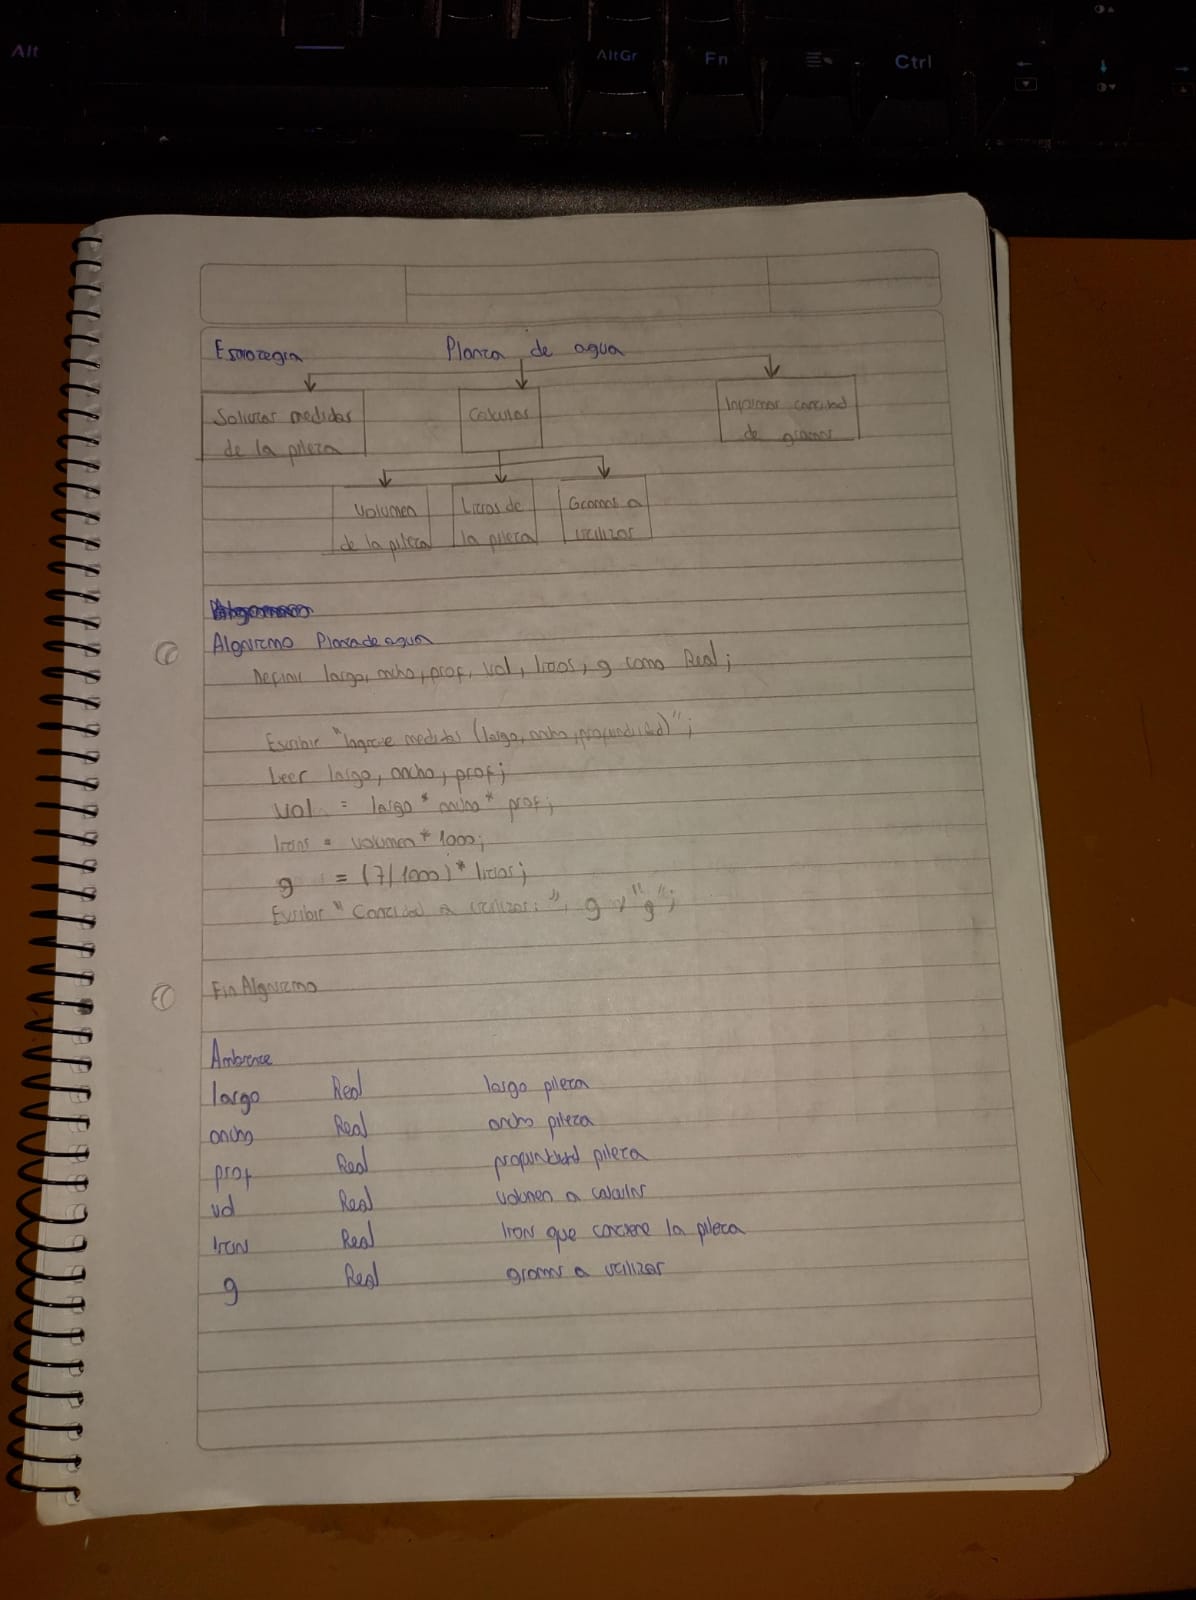 Alt
AltGr
Fn
Ctrl
Estrategia
Planta de agua
Solicitar medidas
de la pileta
Calculos
Informar cantidad
de gramos
Volumen
de la pileta
Litros de
la pileta
Gramos a
utilizar
Algoritmo Plantadeagua
Definir largo, ancho, prof, vol, litros, g como Real;
Escribir "Ingrese medidas (largo, ancho, profundidad)";
Leer largo, ancho, prof;
vol = largo * ancho * prof;
litros = volumen * 1000;
g = (7/1000) * litros;
Escribir "Cantidad a utilizar: ", g, "g";
FinAlgoritmo
Ambiente
largo Real largo pileta
ancho Real ancho pileta
prof Real profundidad pileta
vol Real volumen a calcular
litros Real litros que contiene la pileta
g Real gramos a utilizar